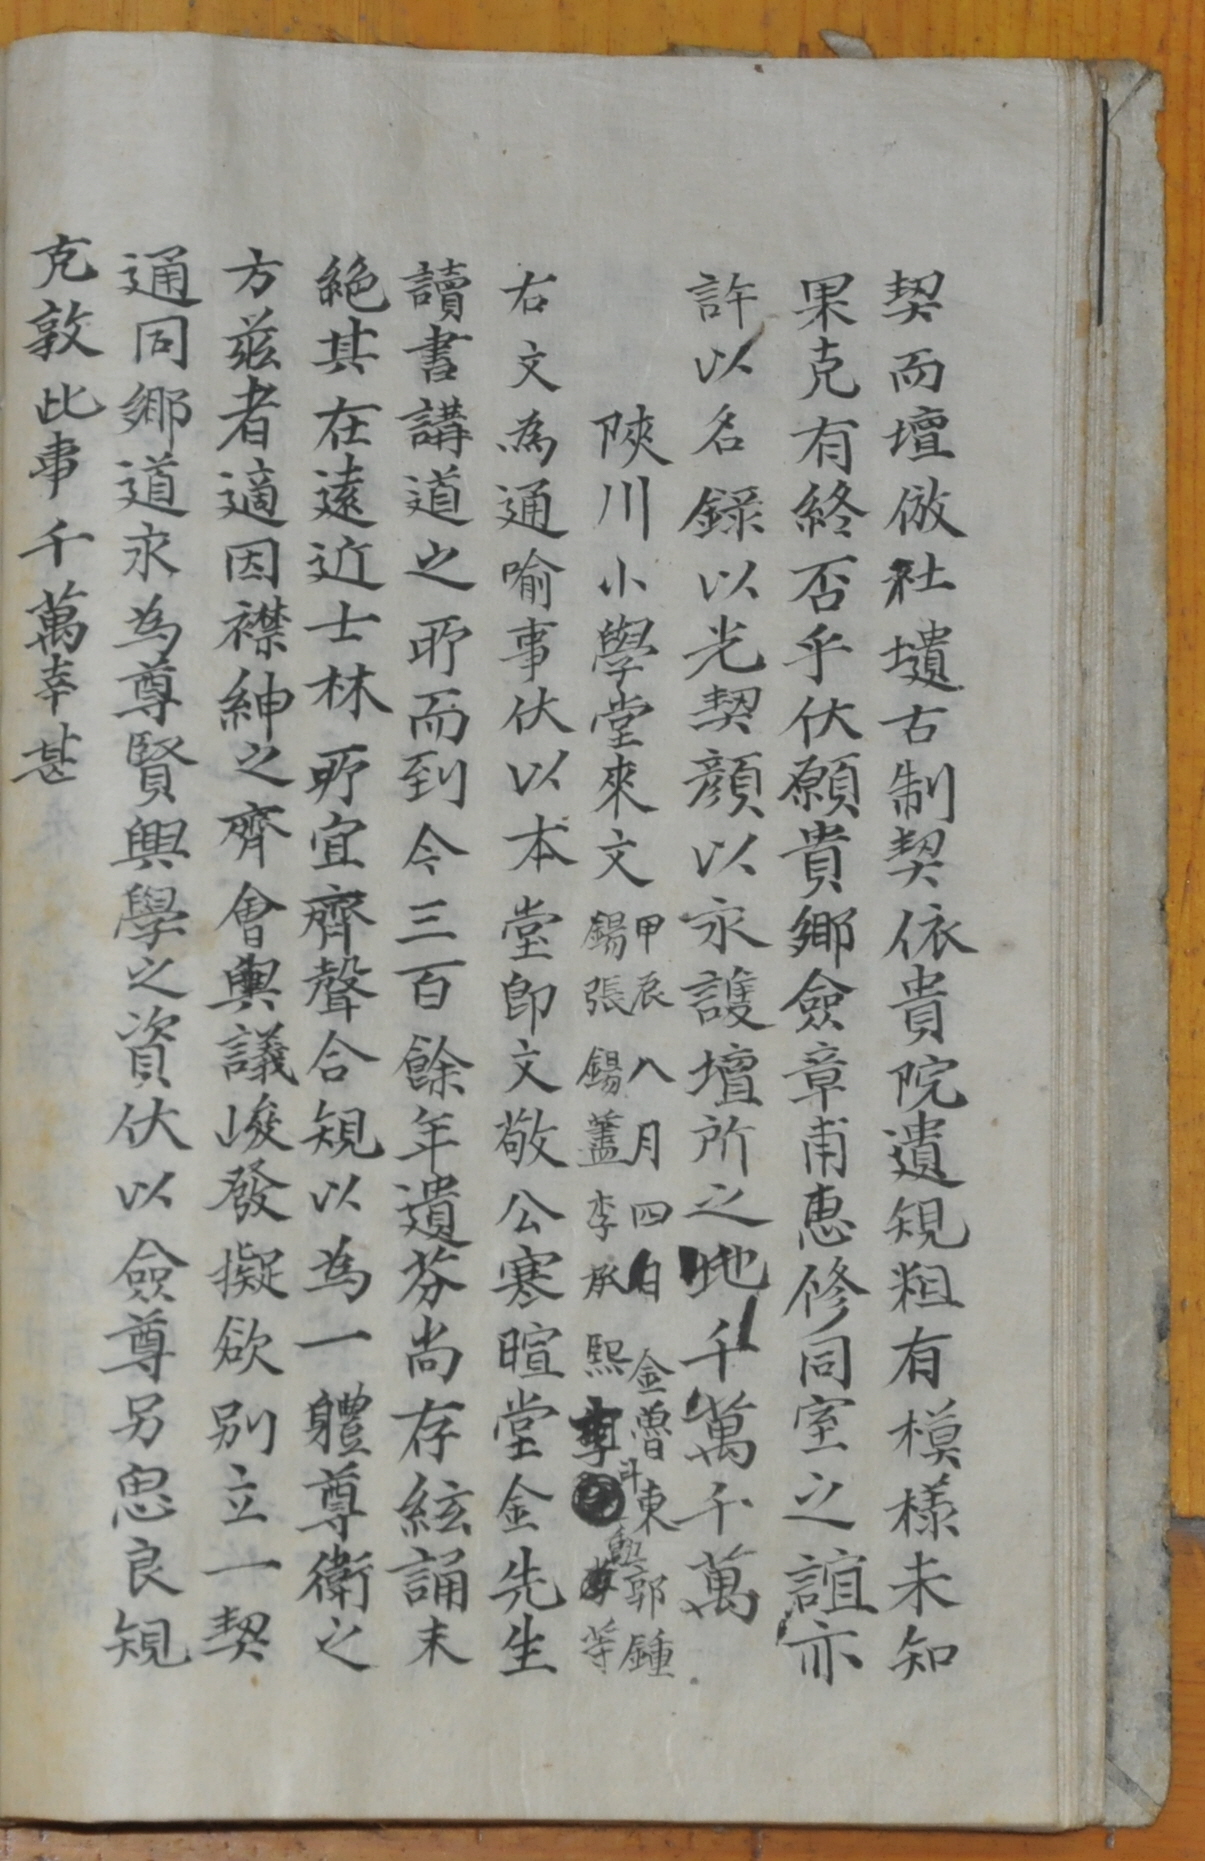 契而壇倣社壝古制契依貴院遺規粗有模樣未知
果克有終否乎伏願貴鄉僉章甫惠修同室之誼亦
許以名錄以光契顔以永護壇所之地千萬千萬
陜川小學堂來文
甲辰八月四日 金魯東 郭鍾
錫張錫藎李承熙 等
右文為通喻事伏以本堂卽文敬公寒暄堂金先生
讀書講道之所而到今三百餘年遺芬尚存絃誦未
絕其在遠近士林所宜齊聲合規以為一體尊衛之
方玆者適因襟紳之齊會輿議峻發擬欲別立一契
通同鄉道永為尊賢興學之資伏以僉尊另思良規
克敦比事千萬幸甚